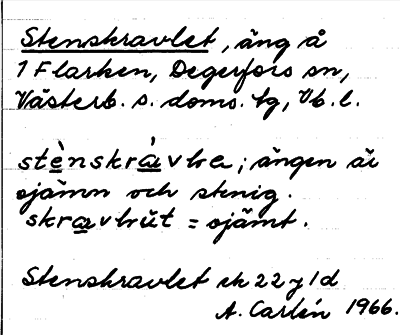 Stenskravlet, äng å
1 Flarken, Degerfors sn,
Västerb. s. doms. tg, Vb. l.
stènskràvḷa; ängen är
ojämn och stenig.
skravḷŭt = ojämt.
Stenskravlet ek 22 y 1 d
A. Carlén 1966.